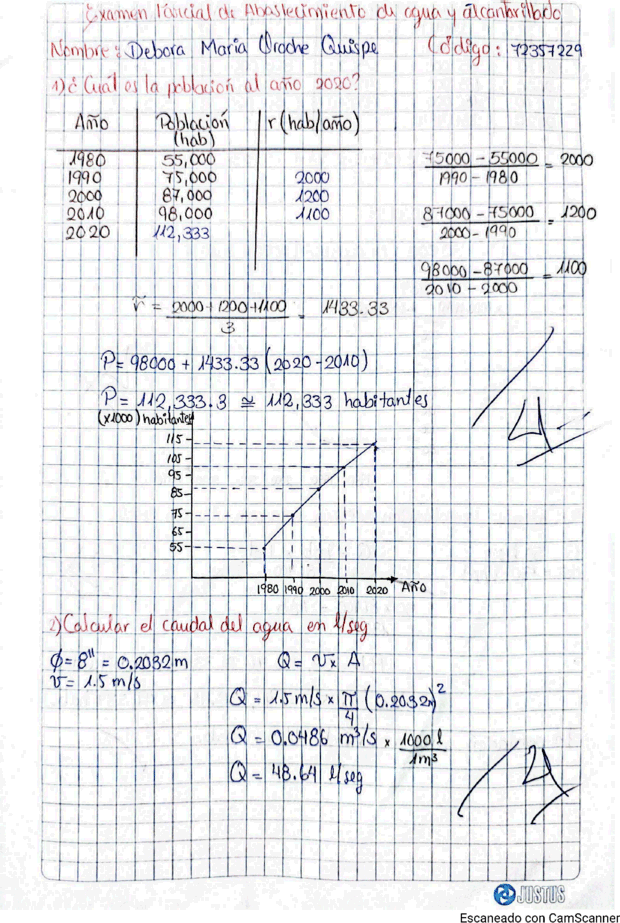 Examen Parcial de Abastecimiento de agua y alcantarillado
Nombre: Debora Maria Oroche Quispe Código: 72357229
1) ¿Cuál es la población al año 2020?
Año Población (hab) r (hab/año)
1980 55,000
1990 75,000 2000
2000 87,000 1200
2010 98,000 1100
2020 112,333
75000 - 55000 / 1990 - 1980 = 2000
87000 - 75000 / 2000 - 1990 = 1200
98000 - 87000 / 2010 - 2000 = 1100
r̄ = 2000 + 1200 + 1100 / 3 = 1433.33
P = 98000 + 1433.33 (2020 - 2010)
P = 112,333.3 ≅ 112,333 habitantes
(x1000) habitantes
115
105
95
85
75
65
55
1980 1990 2000 2010 2020 Año
2) Calcular el caudal del agua en l/seg
Ø = 8" = 0.2032 m
v = 1.5 m/s
Q = v x A
Q = 1.5 m/s x π/4 (0.2032m)²
Q = 0.0486 m³/s x 1000 l / 1m³
Q = 48.64 l/seg
JUSTUS
Escaneado con CamScanner